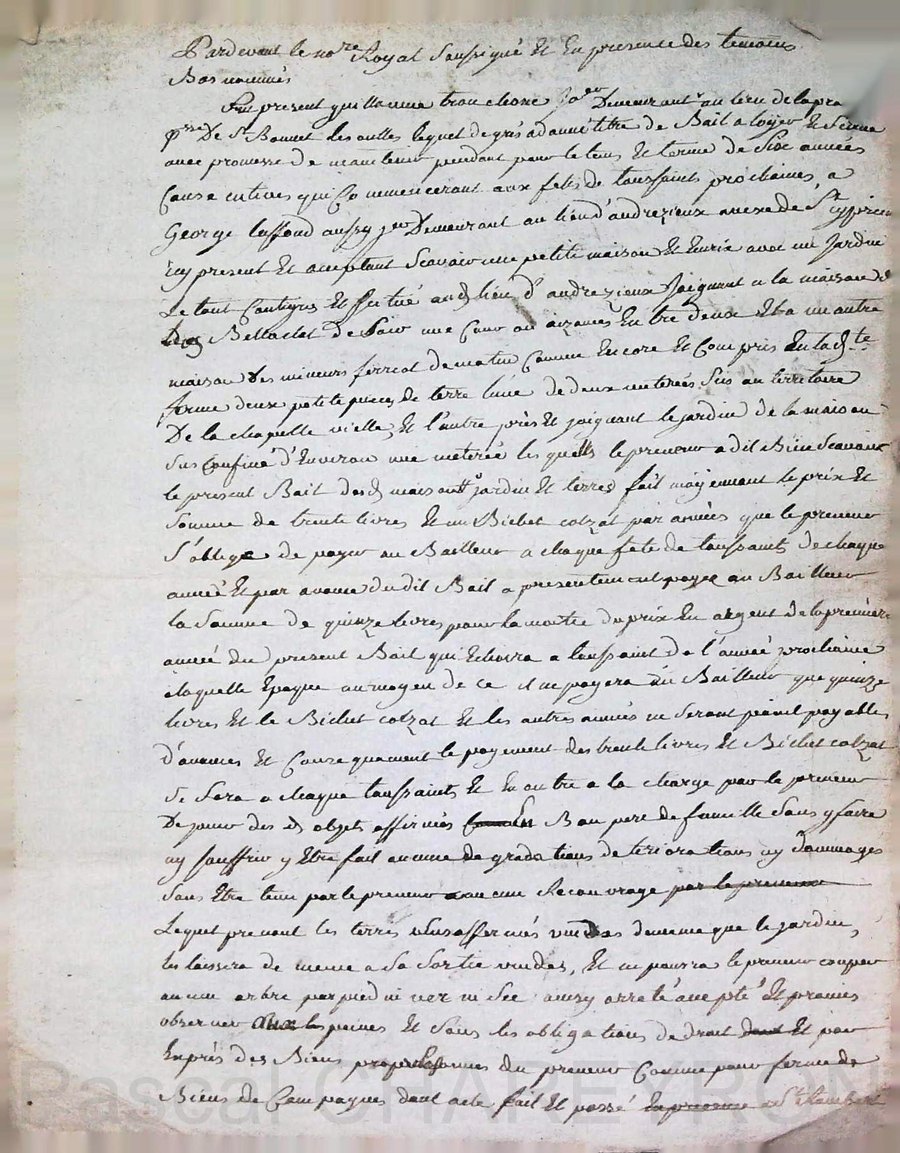 Pardevant le nore Royal Soussigné Et En presence des temoins
Bas nommés
fut present guillaume tronchone Demeurant au lieu de la pra
psse De St Bonnet les oulles lequel de gré a donné titre de Bail a loÿer Et ferme
avec promesse de maintenir pendant pour le tems Et terme de Six années
Consecutives qui Commenceront aux fetes de toussaints prochaines, a
George laffond aussy Demeurant au lieu d'andrezieux anexe de St cyprien
icy present Et aceptant Scavoir une petite maison Et Ecurie avec un Jardin
Le tout Contigus Et scitué aud lieu d'andrezieux Joignant a la maison de
de Soir une Cour ou aizances Entre deux Et a un autre
maison des mineurs ferriol de matin Comme Encore Et Compris En lad te
ferme deux petite pieces de terre l'une de deux meterés Sis au territoire
De la chapelle vielle, Et l'autre près Et joignant le jardin de la maison
Sus Confiné d'Environ une meterée lesquels le preneur a dit Bien Scavoir
le present Bail desd maison jardin Et terres fait moÿennant le prix Et
Somme de trente livres Et un Bichet colzat par années que le preneur
S'oblige de payer au Bailleur a chaque fete de toussaints de chaque
année Et par avance dudit Bail a presentement payé au Bailleur
la Somme de quinze livres pour la moitié du prix En argent de la premiere
année du present Bail qui Echoira a toussaint de l'année prochaine
a laquelle Epoque au moyen de ce il ne payera au Bailleur que quinze
livres Et le Bichet colzat Et les autres années ne Seront point payables
d'avances Et Consequament le payement des trente livres Et Bichet colzat
Se fera a chaque toussaints Et En outre a la charge par le preneur
De jouir des d objets affermés Bon pere de famille Sans y faire
ny souffrir y Etre fait aucune degradations deteriorations ny dommages
Sans Etre tenu par le preneur a aucune Recouvrage par le preneur
Lequel prenant les terres affermés vuides de meme que le jardin,
les laissera de meme a Sa Sortie vuides, Et ne pourra le preneur couper
aucun arbre par pied ni ver ni Sec ainsy arreté accepté Et promis
observer aux peines Et Sous les obligations de droit Et par
Exprès des Biens propres du preneur Comme pour ferme de
Biens de Campagne dont acte fait Et passé En presence a St Rambert
Pascal CHAREYRON